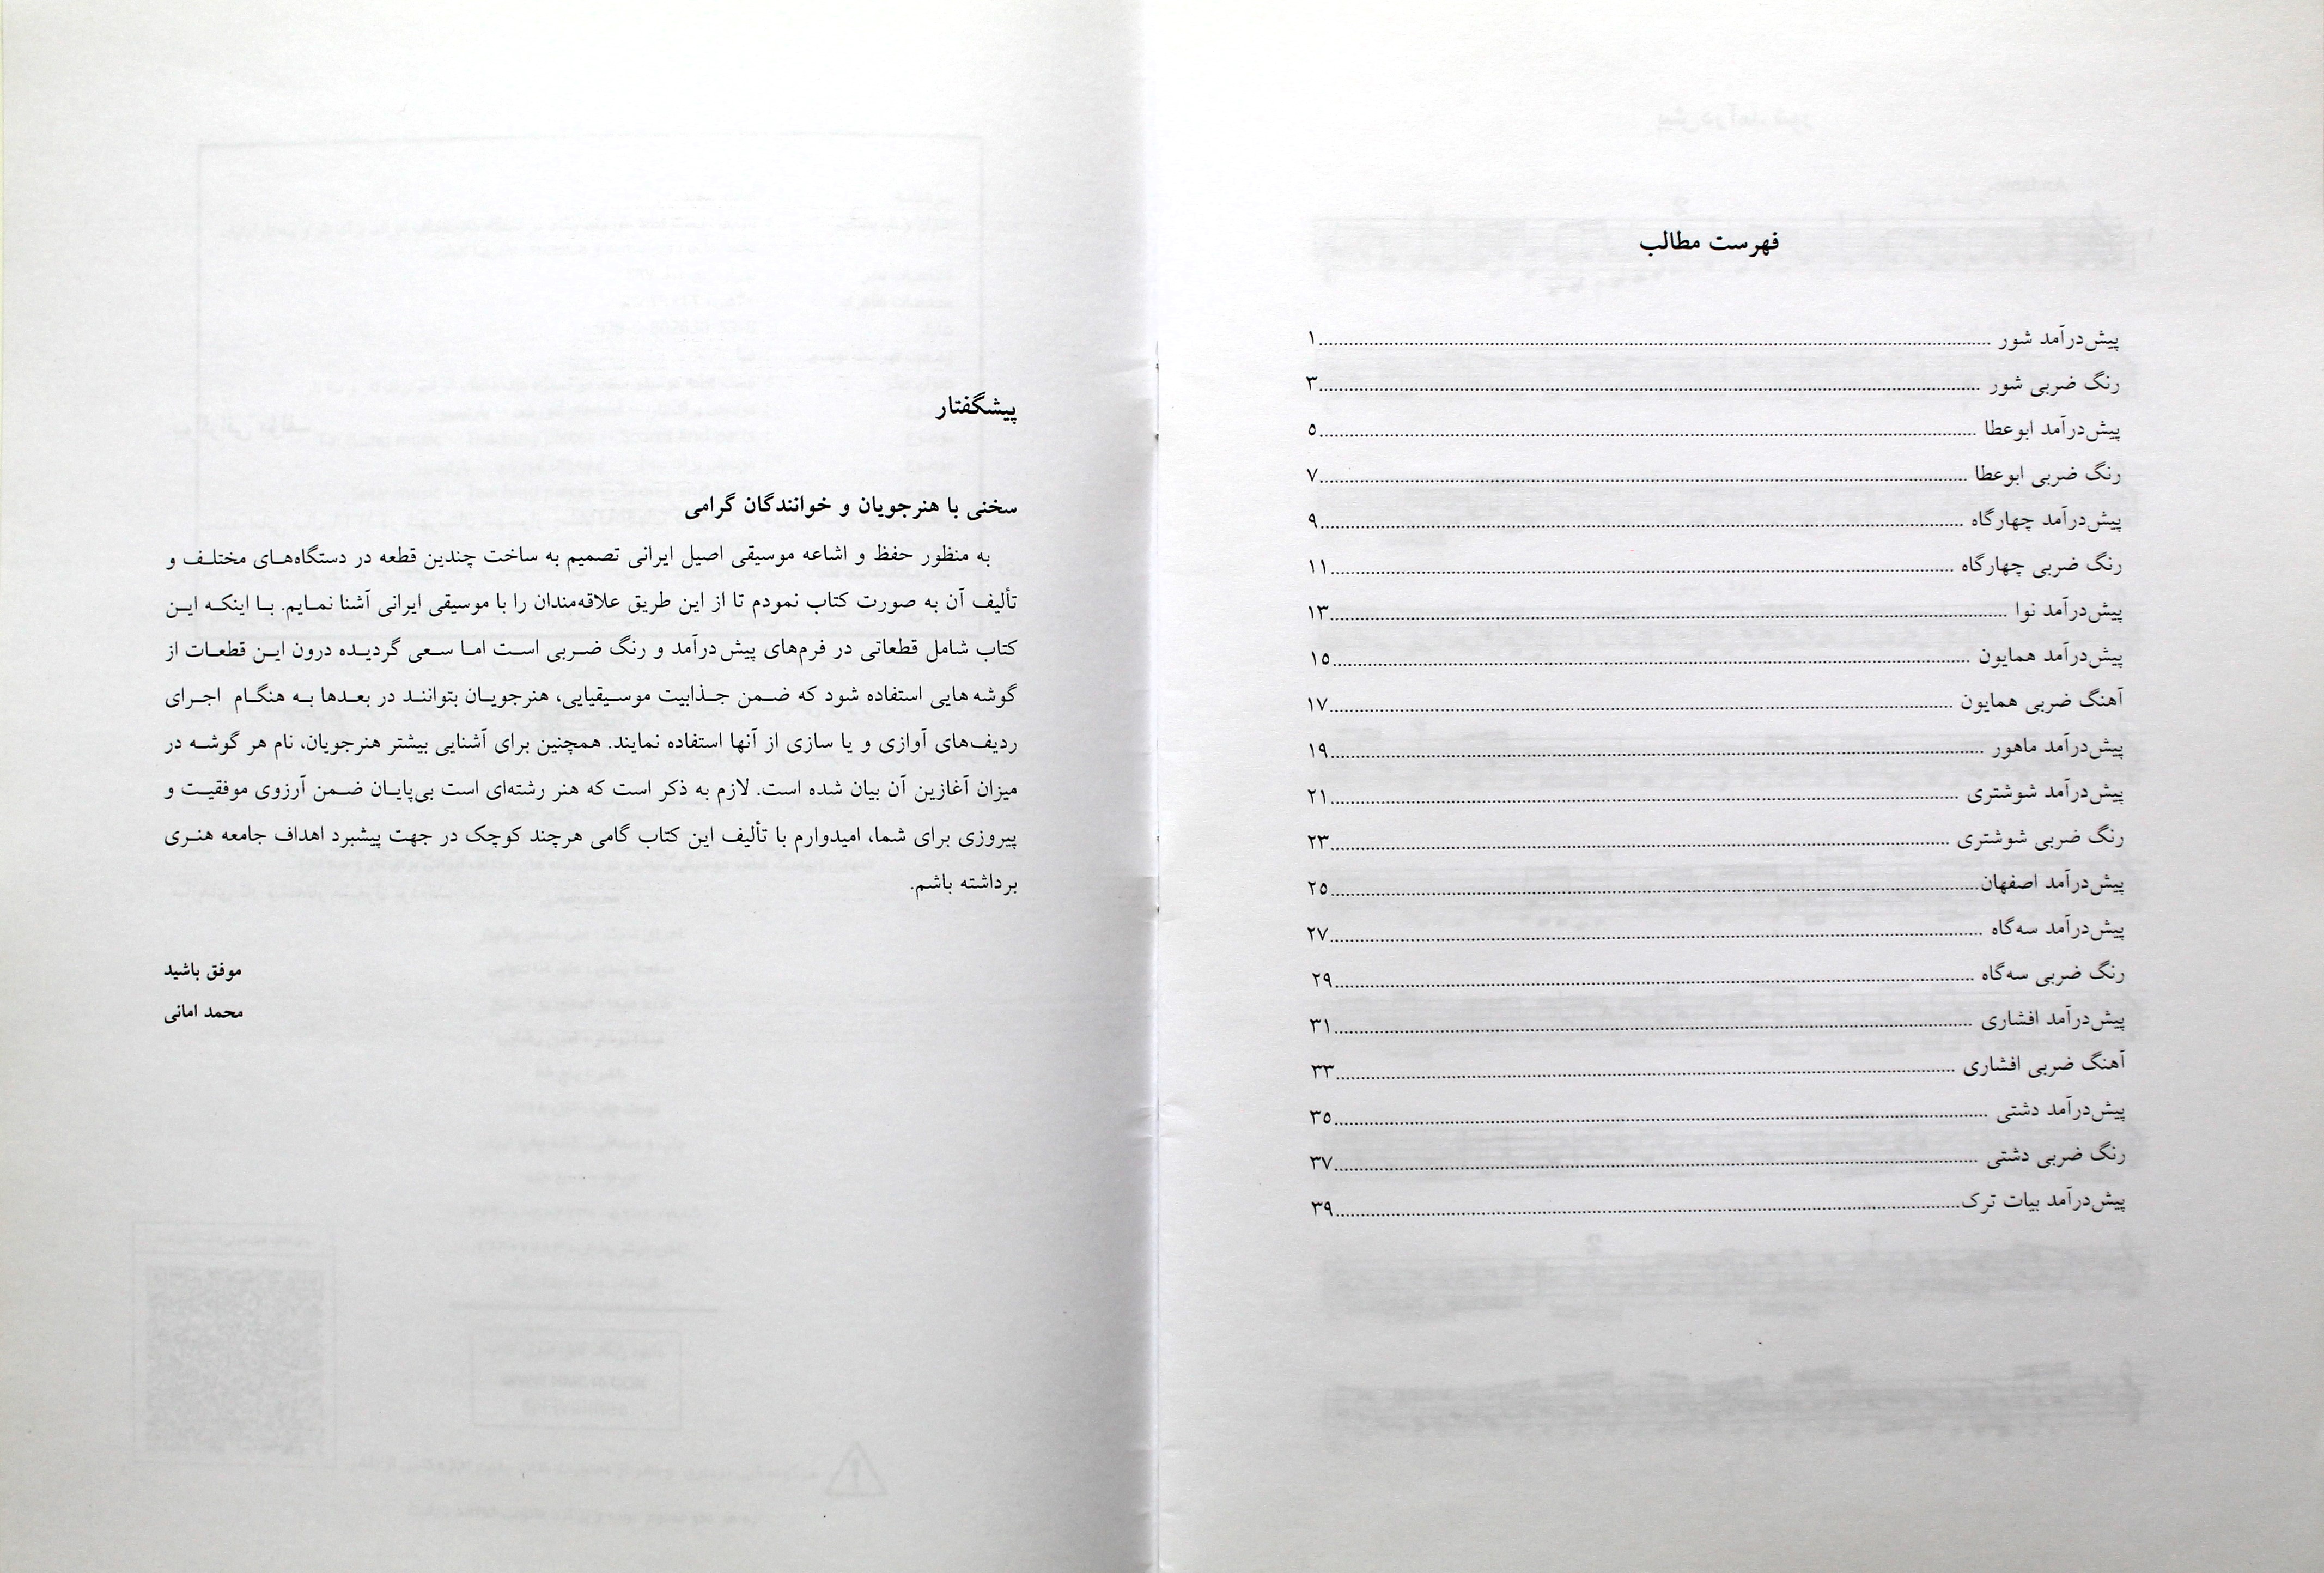 فهرست مطالب
پیش‌درآمد شور ........ ۱
رنگ ضربی شور ........ ۳
پیش‌درآمد ابوعطا ........ ۵
رنگ ضربی ابوعطا ........ ۷
پیش‌درآمد چهارگاه ........ ۹
رنگ ضربی چهارگاه ........ ۱۱
پیش‌درآمد نوا ........ ۱۳
پیش‌درآمد همایون ........ ۱۵
آهنگ ضربی همایون ........ ۱۷
پیش‌درآمد ماهور ........ ۱۹
پیش‌درآمد شوشتری ........ ۲۱
رنگ ضربی شوشتری ........ ۲۳
پیش‌درآمد اصفهان ........ ۲۵
پیش‌درآمد سه‌گاه ........ ۲۷
رنگ ضربی سه‌گاه ........ ۲۹
پیش‌درآمد افشاری ........ ۳۱
آهنگ ضربی افشاری ........ ۳۳
پیش‌درآمد دشتی ........ ۳۵
رنگ ضربی دشتی ........ ۳۷
پیش‌درآمد بیات ترک ........ ۳۹
پیشگفتار
سخنی با هنرجویان و خوانندگان گرامی
به منظور حفظ و اشاعه موسیقی اصیل ایرانی تصمیم به ساخت چندین قطعه در دستگاه‌هـای مختلـف و
تألیف آن به صورت کتاب نمودم تا از این طریق علاقه‌مندان را با موسیقی ایرانی آشنا نمـایم. بـا اینکـه ایـن
کتاب شامل قطعاتی در فرم‌های پیش‌درآمد و رنگ ضـربی اسـت امـا سـعی گردیـده درون ایـن قطعـات از
گوشه‌هایی استفاده شود که ضـمن جـذابیت موسـیقیایی، هنرجویـان بتواننـد در بعـدها بـه هنگـام اجـرای
ردیف‌های آوازی و یا سازی از آنها استفاده نمایند. همچنین برای آشنایی بیشتر هنرجویان، نام هر گوشـه در
میزان آغازین آن بیان شده است. لازم به ذکر است که هنر رشته‌ای است بی‌پایـان ضـمن آرزوی موفقیـت و
پیروزی برای شما، امیدوارم با تألیف این کتاب گامی هرچند کوچک در جهت پیشبرد اهداف جامعه هنـری
برداشته باشم.
موفق باشید
محمد امانی